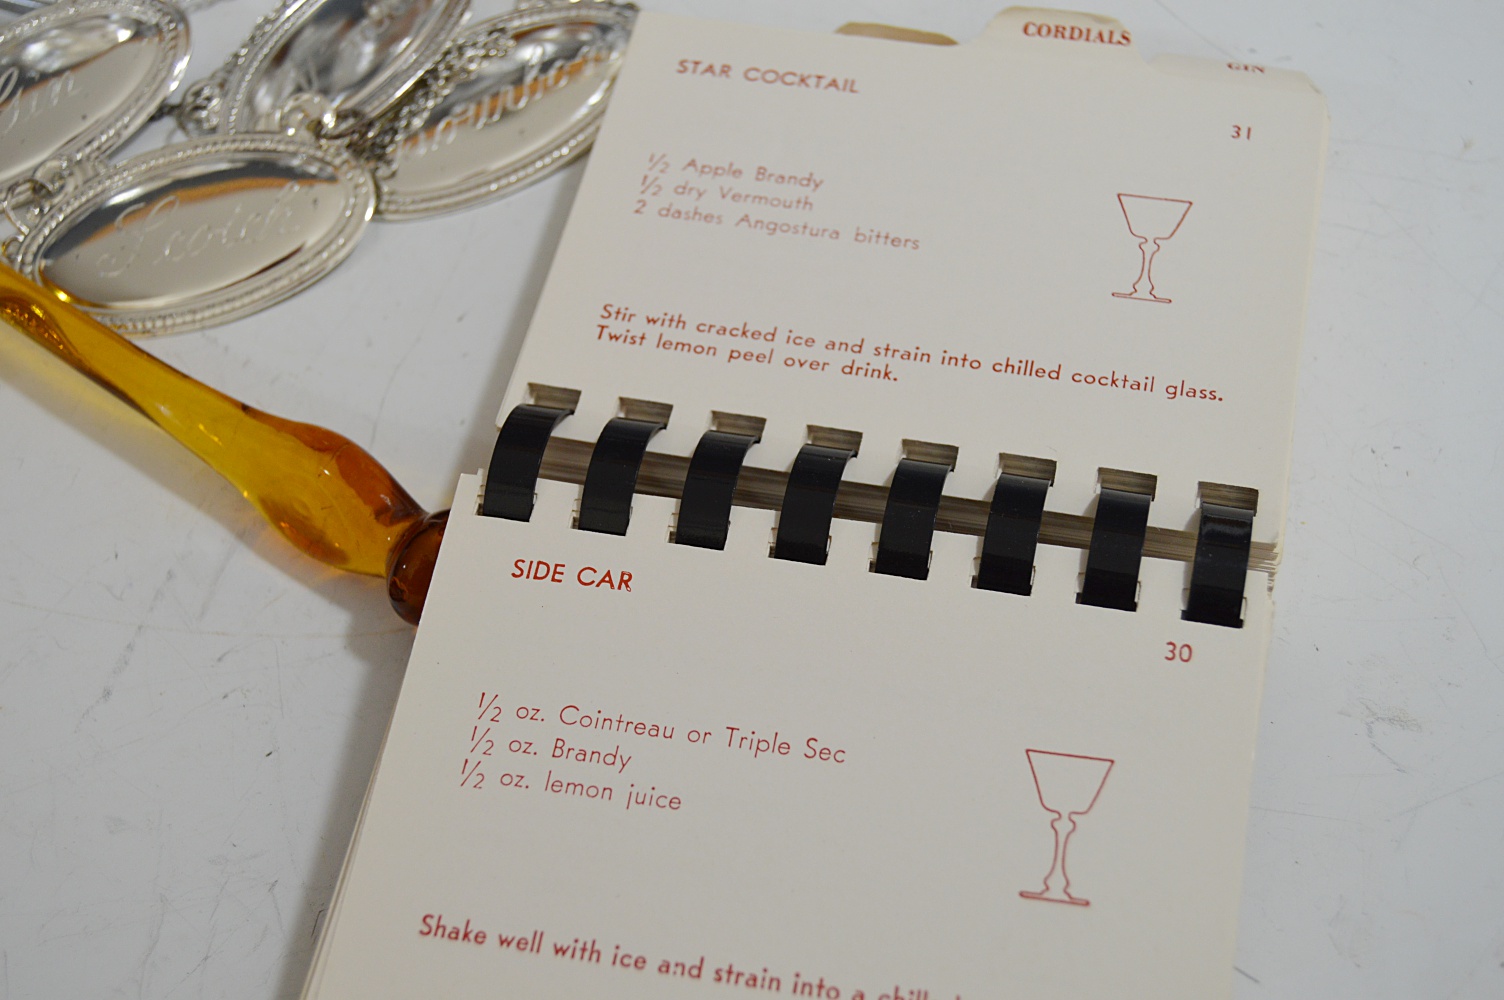 Gin
Scotch
CORDIALS
GIN
STAR COCKTAIL
31
1/2 Apple Brandy
1/2 dry Vermouth
2 dashes Angostura bitters
Stir with cracked ice and strain into chilled cocktail glass.
Twist lemon peel over drink.
SIDE CAR
30
1/2 oz. Cointreau or Triple Sec
1/2 oz. Brandy
1/2 oz. lemon juice
Shake well with ice and strain into a